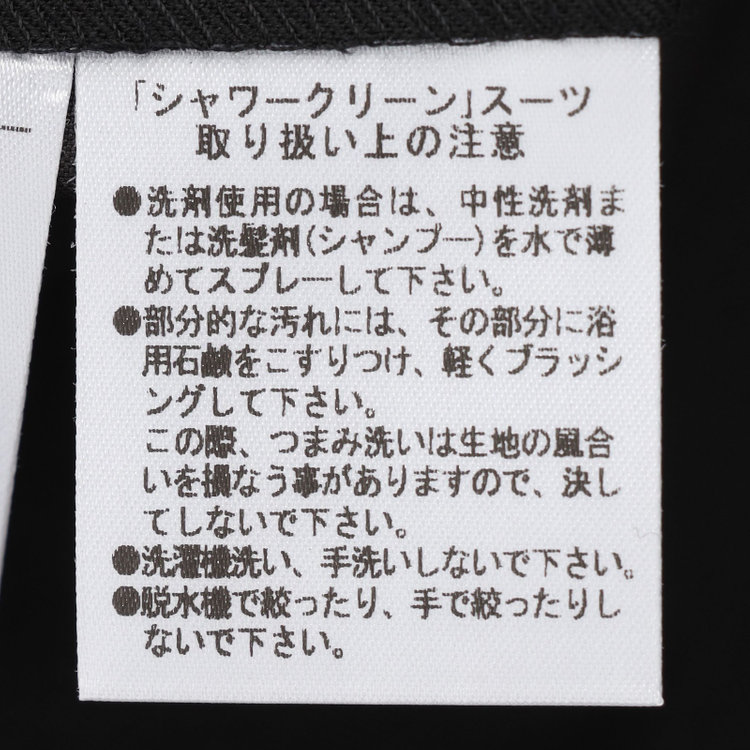 「シャワークリーン」スーツ
取り扱い上の注意
●洗剤使用の場合は、中性洗剤ま
たは洗髪剤(シャンプー)を水で薄
めてスプレーして下さい。
●部分的な汚れには、その部分に浴
用石鹸をこすりつけ、軽くブラッシ
ングして下さい。
この際、つまみ洗いは生地の風合
いを損なう事がありますので、決し
てしないで下さい。
●洗濯機洗い、手洗いしないで下さい。
●脱水機で絞ったり、手で絞ったりし
ないで下さい。